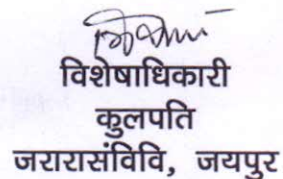 विशेषाधिकारी
कुलपति
जरारासंविवि, जयपुर